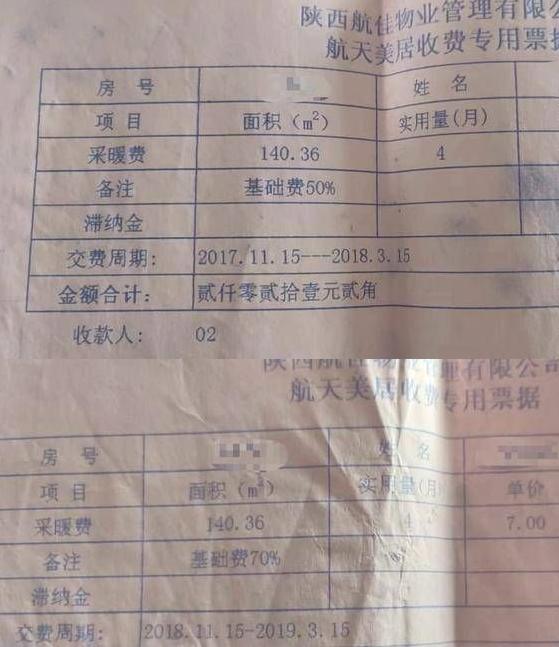 陕西航佳物业管理有限公
航天美居收费专用票据
房 号 姓 名
项 目 面积（m²） 实用量(月)
采暖费 140.36 4
备注 基础费50%
滞纳金
交费周期: 2017.11.15---2018.3.15
金额合计: 贰仟零贰拾壹元贰角
收款人: 02
陕西航佳物业管理有限公司
航天美居收费专用票据
房 号 姓 名
项 目 面积（m²） 实用量(月) 单价
采暖费 140.36 4 7.00
备注 基础费70%
滞纳金
交费周期: 2018.11.15-2019.3.15